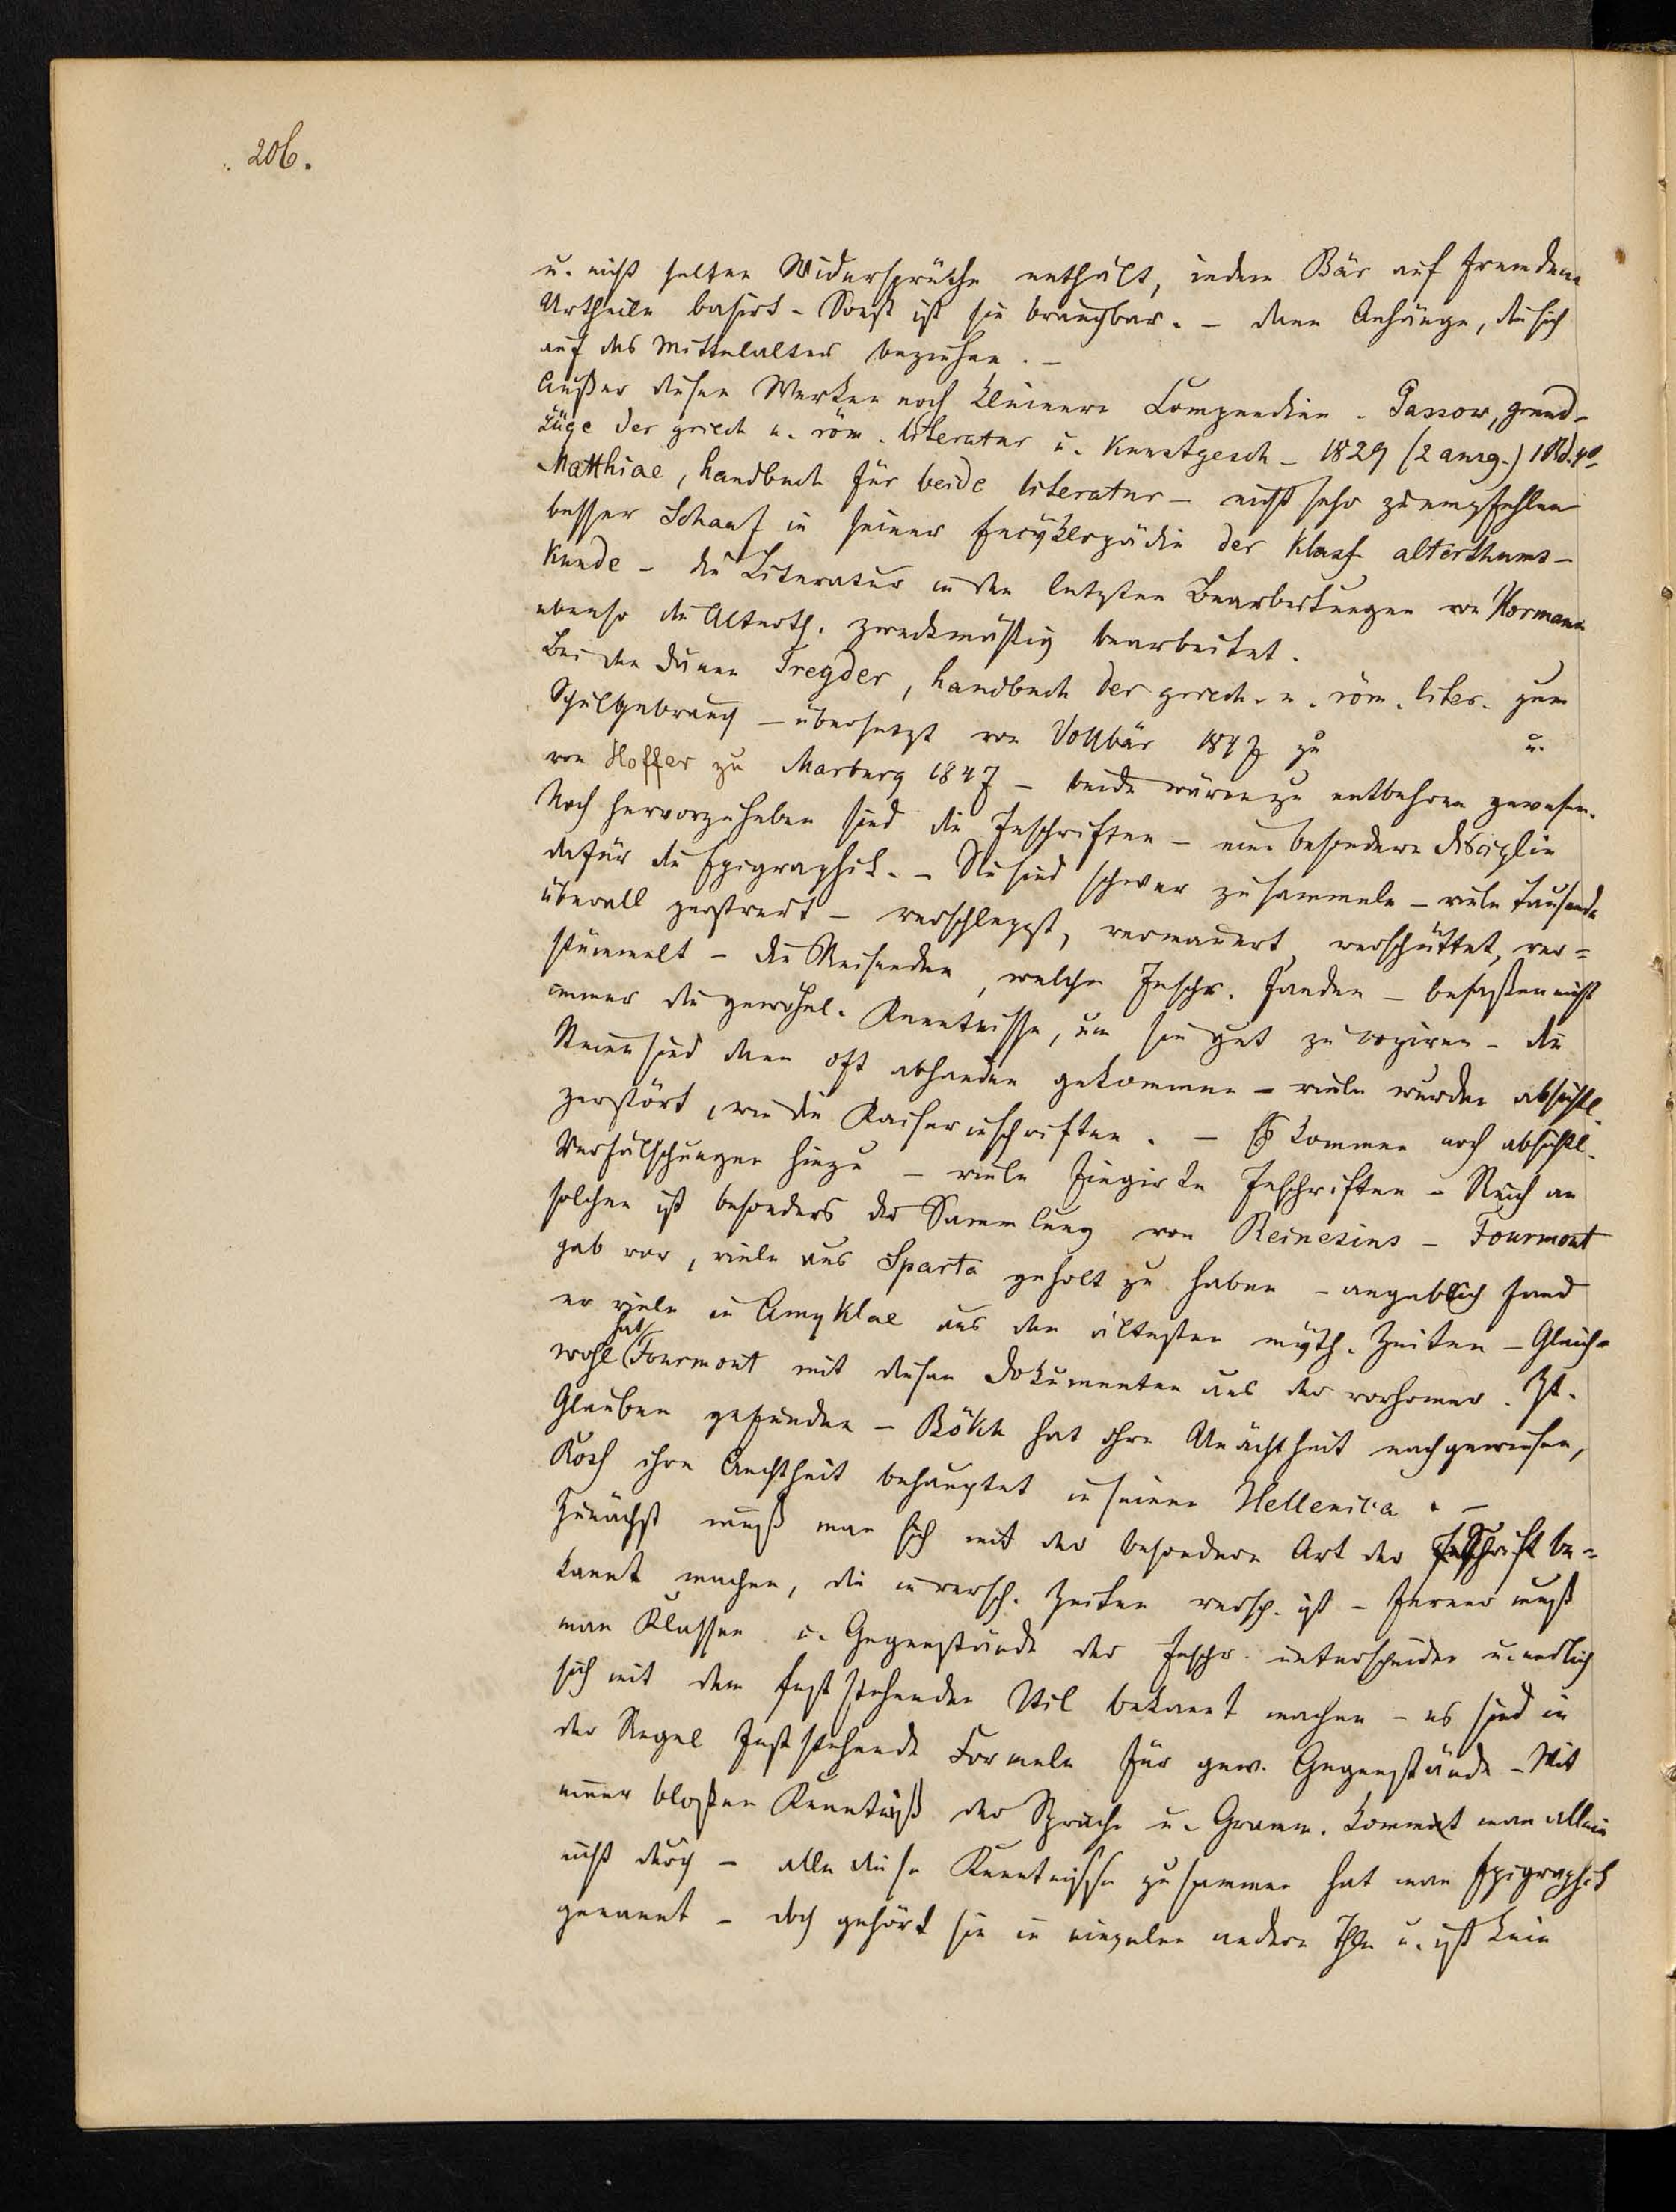 206.
u. nicht selten Widersprüche enthält, indem Bär auf fremdem
Urtheile basirt. Sonst ist sie brauchbar. – dann Anhänge, die sich
auf das Mittelalter beziehen. –
Außer diesen Werken noch kleinere Compendien. Passow, grund-
züge der griech u. röm. literatur u. Kunstgesch – 1829 (2 ausg.) 1 Bd. 4º
Matthiae, handbuch für beide literatur – nicht sehr zu empfehlen
besser Schaaf in seiner Encyklopädie der klass alterthums-
kunde – die Literatur in den letzten Bearbeitungen von Hormann
ebenso die Alterth. zweckmäßig bearbeitet.
Bei den Dänen Tregder, handbuch der griech. u. röm. liter. zum
Schulgebrauch – übersetzt von Vollbär 1847 zu u.
von Hoffer zu Marburg 1847 – beide wären zu entbehren gewesen.
Noch hervorzuheben sind die Inschriften – eine besondere disciplin
dafür die Epigraphik. – Sie sind schwer zu sammeln – viele tausende
überall zerstreut – verschleppt, vermauert, verschüttet, ver=
stümmelt – die Reisenden, welche Inschr. fanden – besaßen nicht
immer die gewöhnl. Kenntnisse, um sie gut zu copiren – die
Steine sind dann oft abhanden gekommen – viele wurden absichtl.
zerstört, wie die Kaiserinschriften. – Es kommen noch absichtl.
Verfälschungen hinzu – viele fingirte Inschriften – Reich an
solchen ist besonders die Sammlung von Reinesius – Fourmont
gab vor, viele aus Sparta geholt zu haben – angeblich fand
er viele in Amyklae aus den ältesten myth. Zeiten – Gleich=
wohl hat Fourmont mit diesen Dokumenten aus der vorhomer. Zt.
Glauben gefunden – Bökh hat ihre Unächtheit nachgewiesen,
Koch ihre Aechtheit behauptet in seinen Hellenica. –
Zunächst muß man sich mit der besondern Art der Inschrift be=
kannt machen, die in versch. Zeiten versch. ist – ferner muß
man Klassen u. Gegenstände der Inschr. unterscheiden u. endlich
sich mit dem feststehenden Stil bekannt machen – es sind in
der Regel feststehende Formeln für gew. Gegenstände – Mit
einer bloßen Kenntniß der Sprache u. Gramm. kommt man allein
nicht durch – alle diese Kenntnisse zusammen hat man Epigraphik
genannt – doch gehört sie in einzelne andere Thle u. ist kein